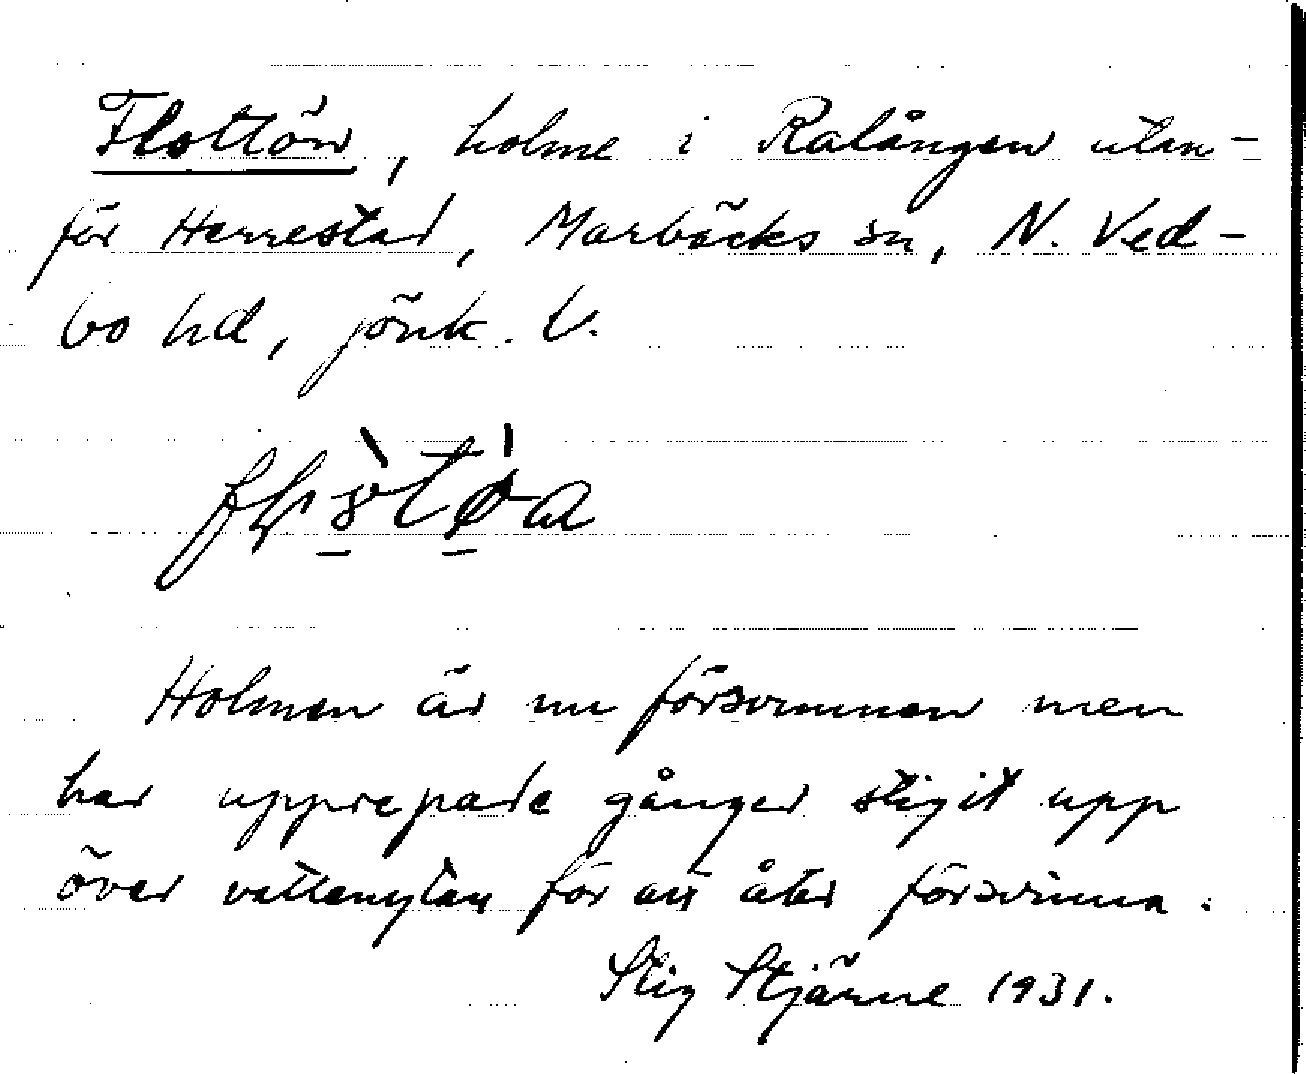 Flottön, holme i Ralången utan-
för Herrestad, Marbäcks sn, N. Ved-
bo hd, Jönk. l.
Holmen är nu försvunnen men
har upprepade gånger stigit upp
över vattenytan för att åter försvinna.
Stig Stjärne 1931.